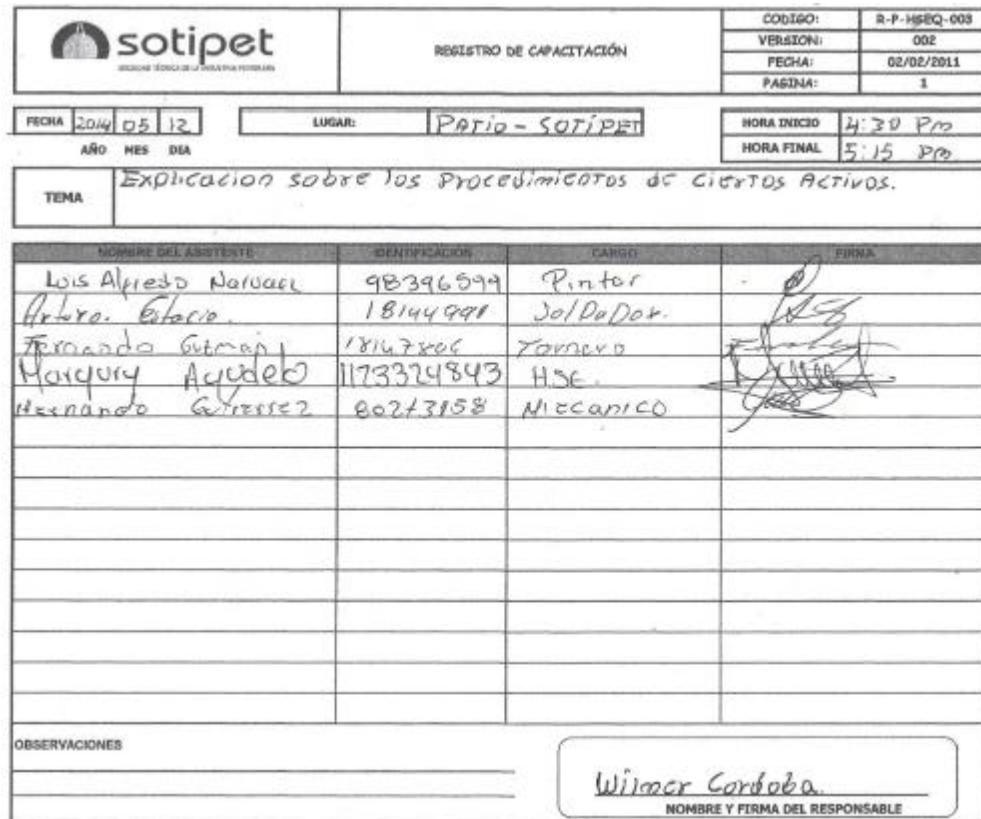 sotipet
REGISTRO DE CAPACITACIÓN
CODIGO: R-P-HSEQ-003
VERSION: 002
FECHA: 02/02/2011
PAGINA: 1
FECHA 2014 05 12
AÑO MES DIA
LUGAR: Patio - SOTIPET
HORA INICIO 4:30 Pm
HORA FINAL 5:15 Pm
TEMA
Explicacion sobre los Procedimientos de Ciertos Activos.
NOMBRE DEL ASISTENTE IDENTIFICACION CARGO FIRMA
Luis Alfredo Narvaez 98396599 Pintor
Arturo. Estacio. SolDaDor.
Fernando Tornero
Agudelo 1123324843 HSE.
Hernando Mecanico
OBSERVACIONES
Wilmer Cordoba.
NOMBRE Y FIRMA DEL RESPONSABLE